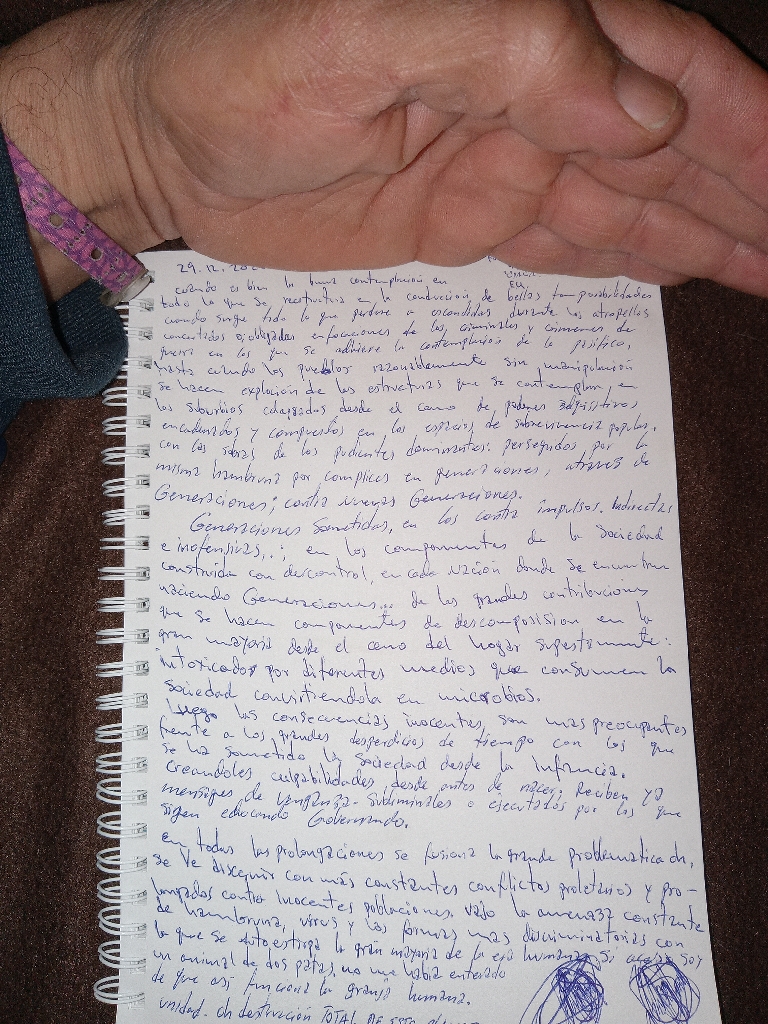 29.12.202
cuando es bien la buena contemplación en
todo lo que se reestructura en la conducción, de bellas transparabilidades
cuando surge todo lo que perdure a escondidas durante los atropellos
concertados o obligadas enfocaciones de los criminales y crimenes de
guerra en los que se adhiere la contemplacion de lo pasifico,
hasta cuando los pueblos razonablemente sin manipulación
se hacen explocion de las estructuras que se contemplan, en
los suburbios colapsados desde el ceno de poderes adquisitivos,
encadenados y compuestos en los espacios de sobrevivencia popular.
con las sobras de los pudientes dominantes: perseguidos por la
misma hambruna por complices en generaciones, atraves de
Generaciones; contra nuevas Generaciones.
Generaciones Sometidas, en los contra impulsos. Indirectas
e inofensivas..; en los componentes de la Sociedad
construida con descontrol, en cada nación donde se encuentran
naciendo Generaciones... de las grandes contribuciones
que se hacen componentes de descomposision en la
gran mayoria desde el ceno del hogar supestamente:
intoxicados por diferentes medios que consumen la
Sociedad convirtiendola en microbios.
Luego las consecuencias inocentes, son mas preocupantes
frente a los grandes desperdicios de tiempo con los que
se ha sometido la Sociedad desde la infancia.
Creandoles culpabilidades desde antes de nacer. Reciben ya
mensages de venganza. Subliminales o ejecutados por los que
siguen educando Gobernando.
en todas las prolongaciones se fusiona la grande problematica oh,
se ve diseguir con más constantes conflictos proletarios y pro-
longados contra inocentes poblaciones. vajo la amenaza constante
de hambruna, virus y las formas mas discriminatorias con
lo que se autoestirpa la gran mayoria de la era humana. Si acaso soy
un animal de dos patas, no me habia enterado
de que asi funciona la granja humana.
unidad. oh destrucción TOTAL DE ESTE